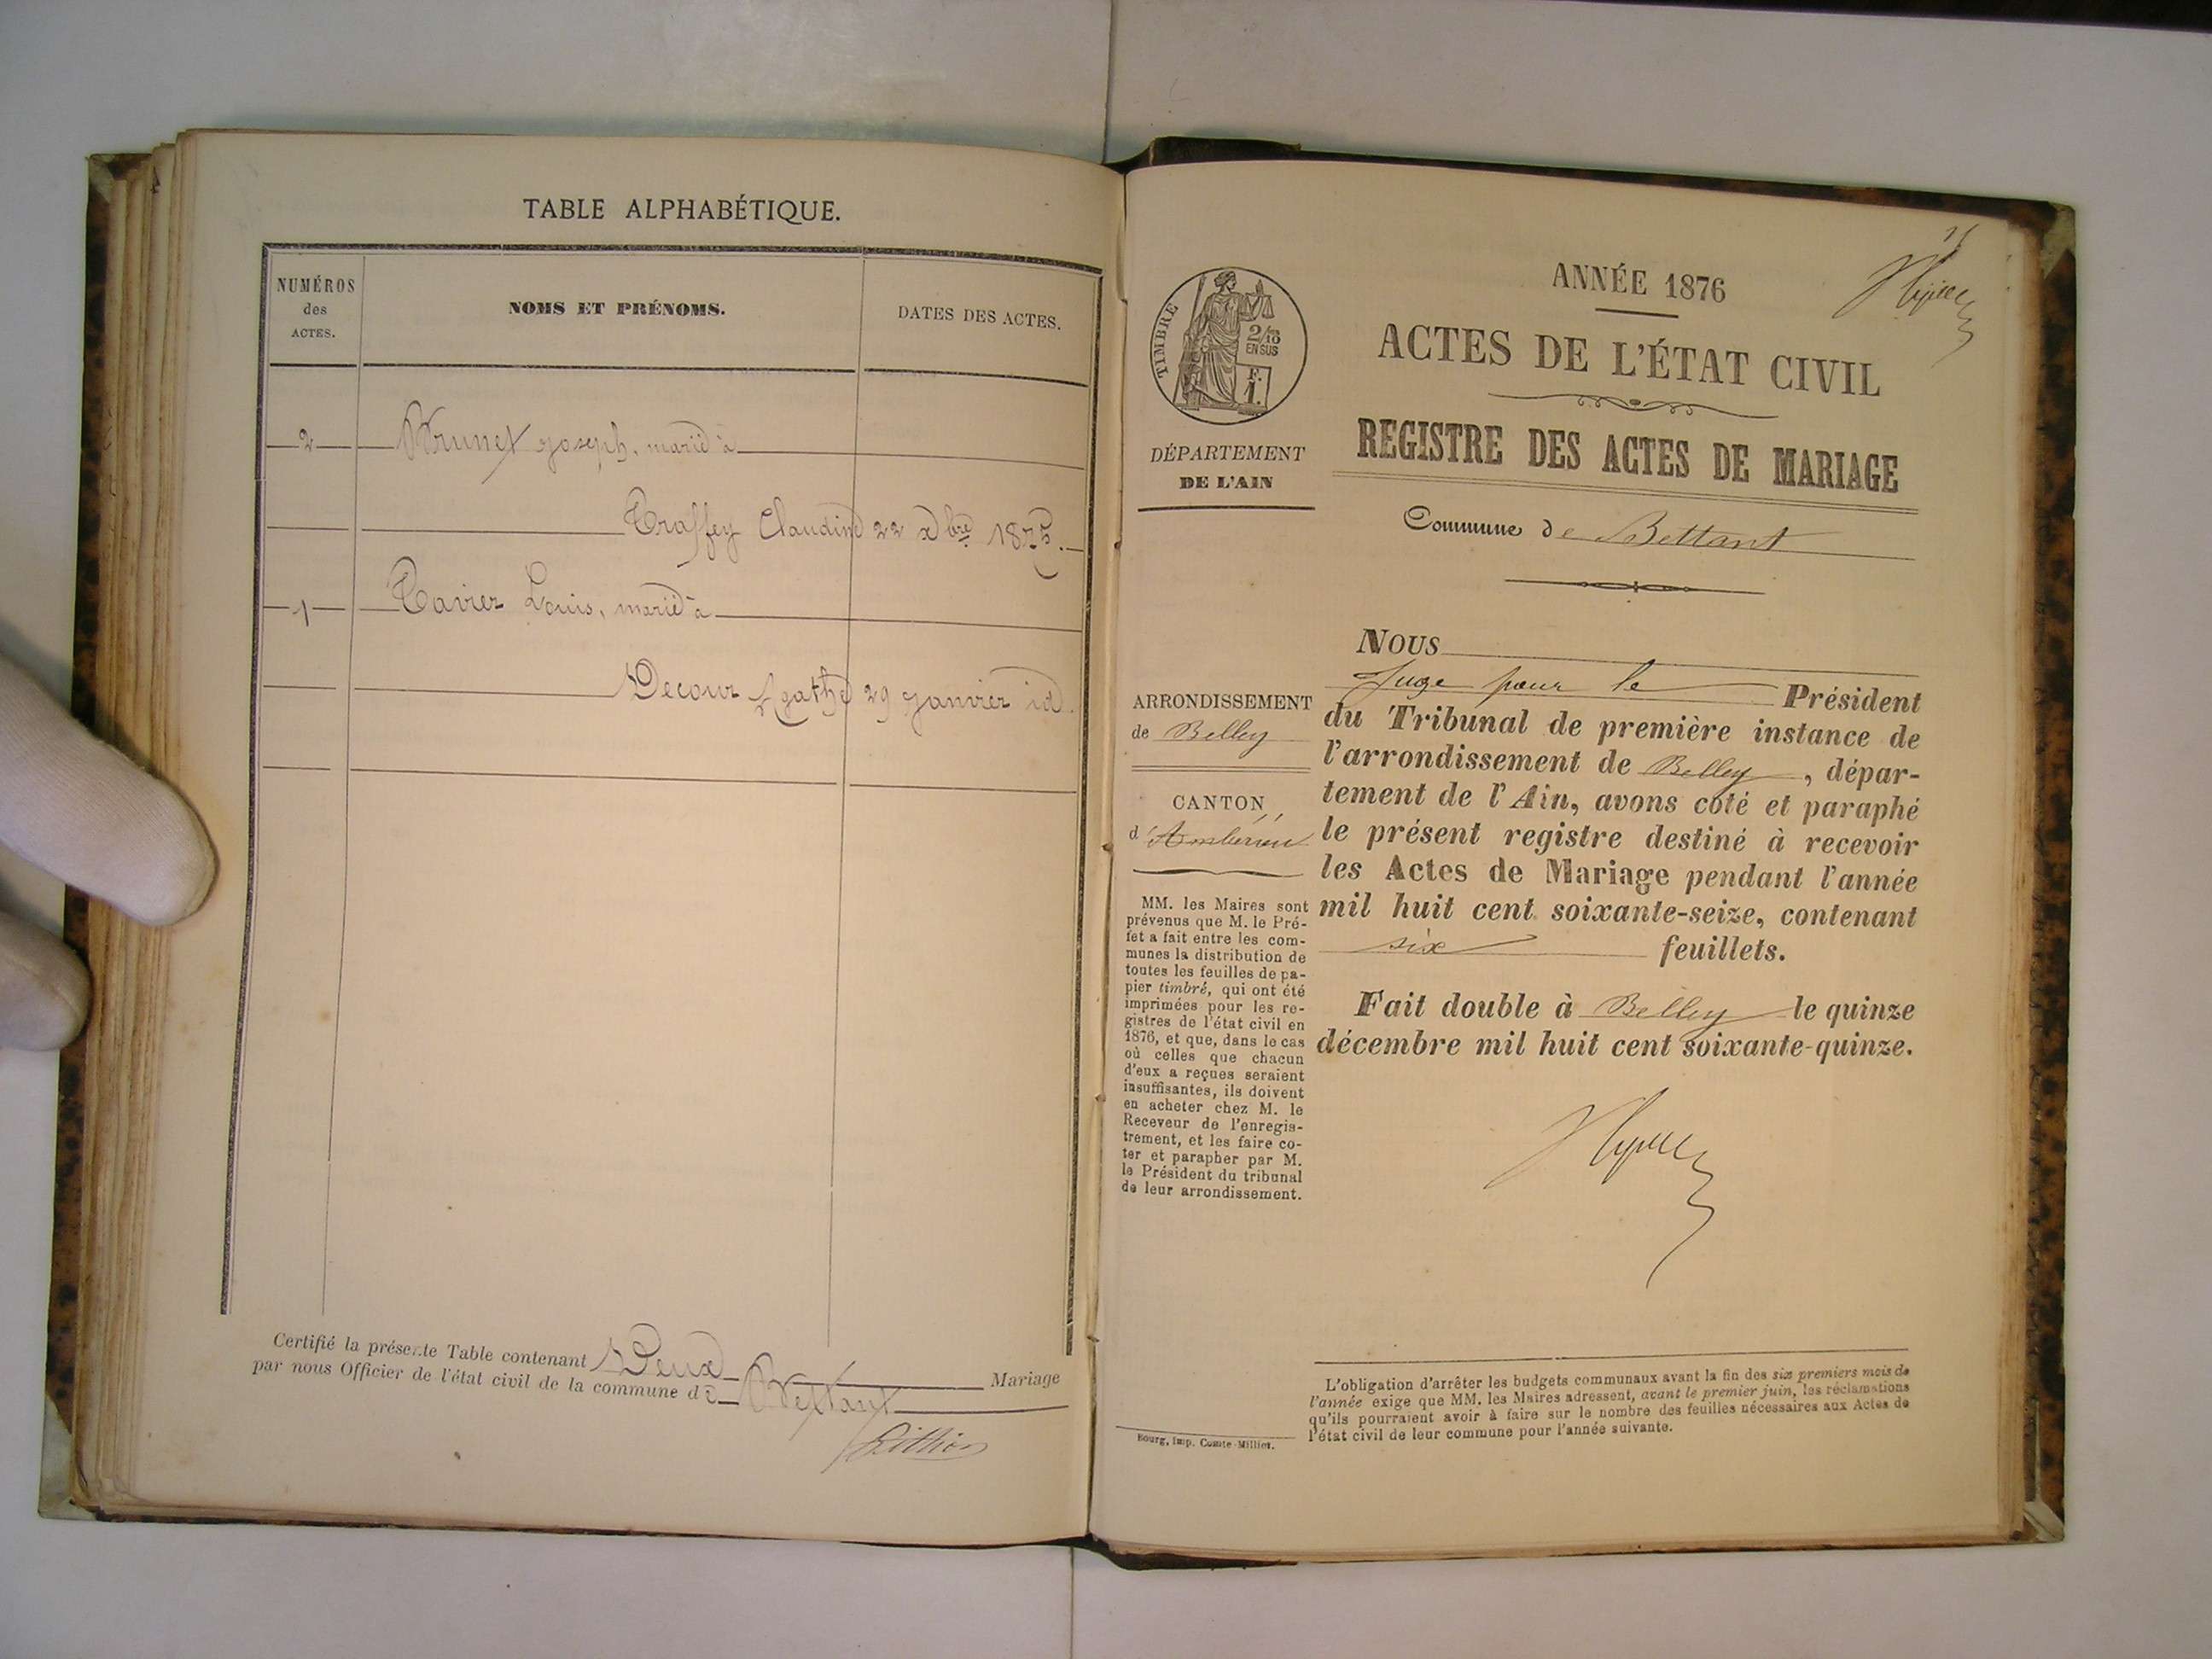 TABLE ALPHABÉTIQUE.
NUMÉROS
des
ACTES.
NOMS ET PRÉNOMS.
DATES DES ACTES.
2 Brunet Joseph, marié à
Traffey Claudine 22 Xbre 1875.
1 Tavier Louis, marié à
Decour Agathe 29 Janvier id.
Certifié la présente Table contenant Deux Mariage
par nous Officier de l'état civil de la commune de Bettant
TIMBRE
2/10
EN SUS
F.
1.
DÉPARTEMENT
DE L'AIN
ARRONDISSEMENT
de Belley
CANTON
d'Ambérieu
MM. les Maires sont
prévenus que M. le Pré-
fet a fait entre les com-
munes la distribution de
toutes les feuilles de pa-
pier timbré, qui ont été
imprimées pour les re-
gistres de l'état civil en
1876, et que, dans le cas
où celles que chacun
d'eux a reçues seraient
insuffisantes, ils doivent
en acheter chez M. le
Receveur de l'enregis-
trement, et les faire co-
ter et parapher par M.
le Président du tribunal
de leur arrondissement.
Bourg, imp. Comte-Milliet.
ANNÉE 1876
ACTES DE L'ÉTAT CIVIL
REGISTRE DES ACTES DE MARIAGE
Commune de Bettant
NOUS
Juge pour le Président
du Tribunal de première instance de
l'arrondissement de Belley, dépar-
tement de l'Ain, avons coté et paraphé
le présent registre destiné à recevoir
les Actes de Mariage pendant l'année
mil huit cent soixante-seize, contenant
six feuillets.
Fait double à Belley le quinze
décembre mil huit cent soixante-quinze.
L'obligation d'arrêter les budgets communaux avant la fin des six premiers mois de
l'année exige que MM. les Maires adressent, avant le premier juin, les réclamations
qu'ils pourraient avoir à faire sur le nombre des feuilles nécessaires aux Actes de
l'état civil de leur commune pour l'année suivante.